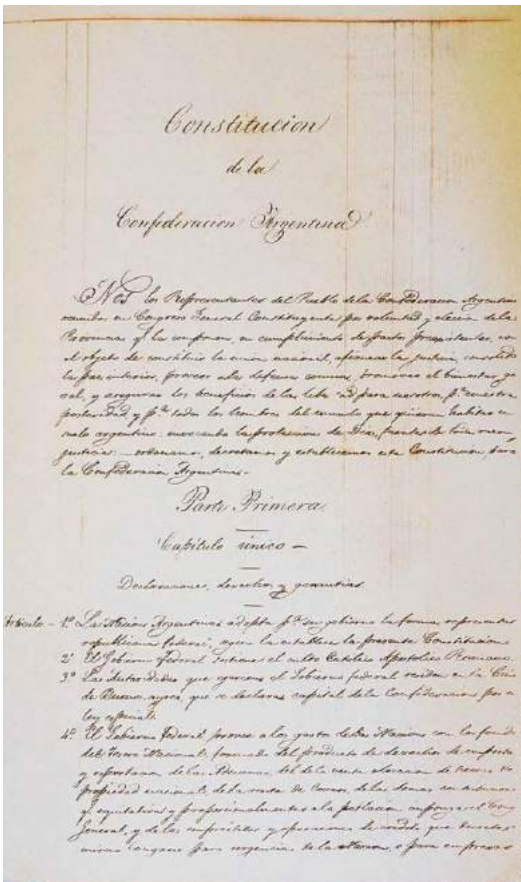 Constitucion
de la
Confederacion Argentina
Nos los Representantes del Pueblo de la Confederacion Argentina
reunidos en Congreso General Constituyente por voluntad y eleccion de las
Provincias qe. la componen, en cumplimiento de pactos preexistentes, con
el objeto de constituir la union nacional, afianzar la justicia, consolidar
la paz interior, proveer a la defensa comun, promover el bienestar ge
ral, y asegurar los beneficios de la libertad para nosotros, pa. nuestra
posteridad y pa. todos los hombres del mundo que quieran habitar en
suelo argentino: invocando la proteccion de Dios, fuente de toda razon
justicia: ordenamos, decretamos y establecemos esta Constitucion, para
la Confederacion Argentina.
Parte Primera
Capitulo único
Declaraciones, derechos y garantias
Articulo 1º La Nacion Argentina adopta pa. su gobierno la forma representativa
republicana federal, segun la establece la presente Constitucion
2º El Gobierno federal sostiene el culto Católico Apostolico Romano.
3º Las Autoridades que ejercen el Gobierno federal residen en la Ciudad
de Buenos ayres, que se declara capital de la Confederacion por una
ley especial.
4º El Gobierno federal provee a los gastos de la Nacion con los fondos
del Tesoro Nacional, formado del producto de derechos de importacion
y esportacion de las Aduanas, del de la venta o locacion de tierras de
propiedad nacional, de la renta de Correos, de las demas contribuciones
qe. equitativa y proporcionalmente a la poblacion imponga el Congreso
General, y de los empréstitos y operaciones de crédito que decrete
mismo Congreso para urgencias de la Nacion, o para empresas